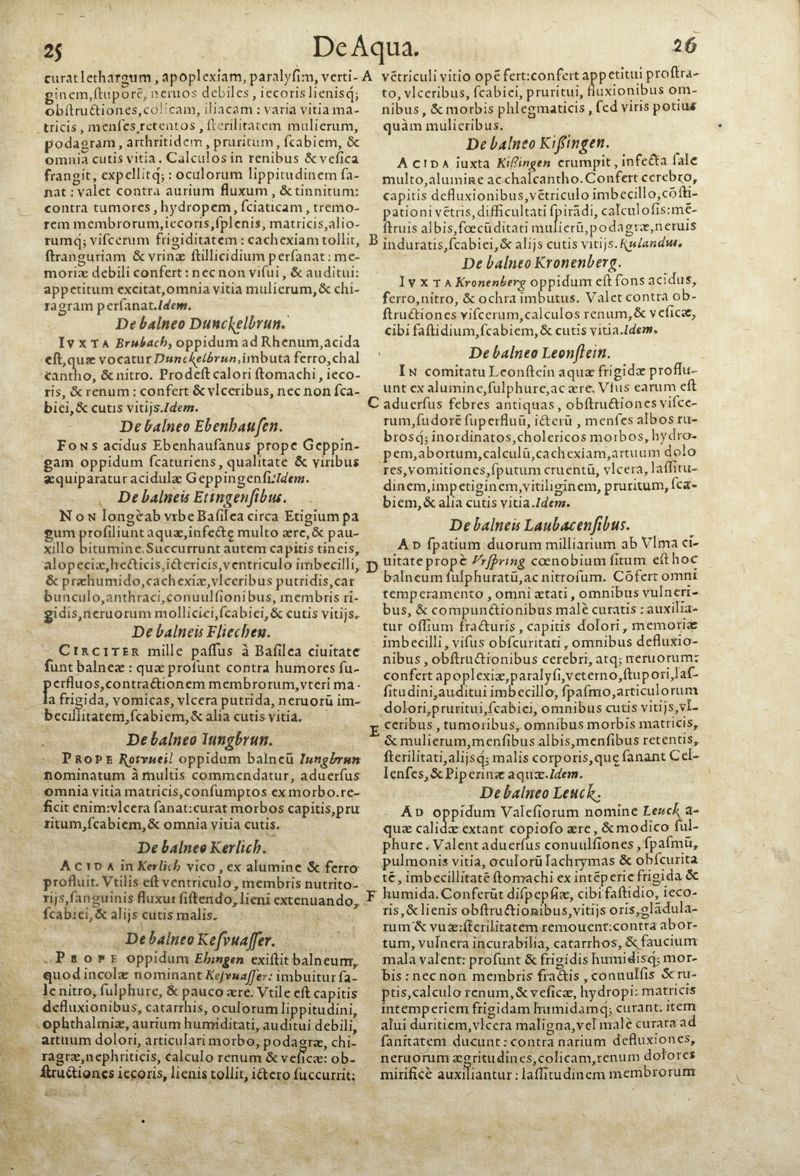 25
De Aqua.
26
curat lethargum, apoplexiam, paralyſim, verti-
ginem, ſtuporē, neruos debiles, iecoris lieniſq;
obſtructiones, colicam, iliacam : varia vitia ma-
tricis, menſes retentos, ſterilitatem mulierum,
podagram, arthritidem, pruritum, ſcabiem, &
omnia cutis vitia. Calculos in renibus & veſica
frangit, expellitq; : oculorum lippitudinem ſa-
nat : valet contra aurium fluxum, & tinnitum:
contra tumores, hydropem, ſciaticam, tremo-
rem membrorum, iecoris, ſplenis, matricis, alio-
rumq; viſcerum frigiditatem : cachexiam tollit,
ſtranguriam & vrinæ ſtillicidium perſanat : me-
moriæ debili confert : nec non viſui, & auditui:
appetitum excitat, omnia vitia mulierum, & chi-
ragram perſanat. Idem.
De balneo Dunckelbrun.
IVXTA Brubach, oppidum ad Rhenum, acida
eſt, quæ vocatur Dunckelbrun, imbuta ferro, chal
cantho, & nitro. Prodeſt calori ſtomachi, ieco-
ris, & renum : confert & vlceribus, nec non ſca-
biei, & cutis vitijs. Idem.
De balneo Ebenhauſen.
FONS acidus Ebenhauſanus prope Geppin-
gam oppidum ſcaturiens, qualitate & viribus
æquiparatur acidulæ Geppingenſi. Idem.
De balneis Ettngenſibus.
NON longè ab vrbe Baſilea circa Etigium pa
gum proſiliunt aquæ, infectę multo ære, & pau-
xillo bitumine. Succurrunt autem capitis tineis,
alopeciæ, hecticis, ictericis, ventriculo imbecilli,
& præhumido, cachexiæ, vlceribus putridis, car
bunculo, anthraci, conuulſionibus, membris ri-
gidis, neruorum molliciei, ſcabiei, & cutis vitijs.
De balneis Fliechen.
CIRCITER mille paſſus à Baſilea ciuitate
ſunt balneæ : quæ proſunt contra humores ſu-
perfluos, contractionem membrorum, vteri ma-
la frigida, vomicas, vlcera putrida, neruorū im-
becillitatem, ſcabiem, & alia cutis vitia.
De balneo Iungbrun.
PROPE Rotvueil oppidum balneū Iungbrun
nominatum à multis commendatur, aduerſus
omnia vitia matricis, conſumptos ex morbo. re-
ficit enim : vlcera ſanat : curat morbos capitis, pru
ritum, ſcabiem, & omnia vitia cutis.
De balneo Kerlich.
ACIDA in Kerlich vico, ex alumine & ferro
profluit. Vtilis eſt ventriculo, membris nutrito-
rijs, ſanguinis fluxui ſiſtendo, lieni extenuando,
ſcabiei, & alijs cutis malis.
De balneo Kefvuaſſer.
PROPE oppidum Ehingen exiſtit balneum,
quod incolæ nominant Kefvuaſſer : imbuitur ſa-
le nitro, ſulphure, & pauco ære. Vtile eſt capitis
defluxionibus, catarrhis, oculorum lippitudini,
ophthalmiæ, aurium humiditati, auditui debili,
artuum dolori, articulari morbo, podagræ, chi-
ragræ, nephriticis, calculo renum & veſicæ : ob-
ſtructiones iecoris, lienis tollit, ictero ſuccurrit;
A
vētriculi vitio opē fert : confert appetitui proſtra-
to, vlceribus, ſcabiei, pruritui, fluxionibus om-
nibus, & morbis phlegmaticis, ſed viris potius
quàm mulieribus.
De balneo Kiſsingen.
ACIDA iuxta Kiſsingen erumpit, infecta ſale
multo, alumine ac chalcantho. Confert cerebro,
capitis defluxionibus, vētriculo imbecillo, cōſti-
pationi vētris, difficultati ſpirādi, calculoſis : mē-
ſtruis albis, fœcūditati mulierū, podagræ, neruis
B
induratis, ſcabiei, & alijs cutis vitijs. Rulandus.
De balneo Kronenberg.
IVXTA Kronenberg oppidum eſt fons acidus,
ferro, nitro, & ochra imbutus. Valet contra ob-
ſtructiones viſcerum, calculos renum, & veſicæ,
cibi faſtidium, ſcabiem, & cutis vitia. Idem.
De balneo Leonſtein.
IN comitatu Leonſtein aquæ frigidæ proflu-
unt ex alumine, ſulphure, ac ære. Vſus earum eſt
C
aduerſus febres antiquas, obſtructiones viſce-
rum, ſudorē ſuperfluū, icterū, menſes albos ru-
broſq; inordinatos, cholericos morbos, hydro-
pem, abortum, calculū, cachexiam, artuum dolo
res, vomitiones, ſputum cruentū, vlcera, laſſitu-
dinem, impetiginem, vitiliginem, pruritum, ſca-
biem, & alia cutis vitia. Idem.
De balneis Laubacenſibus.
AD ſpatium duorum milliarium ab Vlma ci-
D
uitate propè Vrſpring cœnobium ſitum eſt hoc
balneum ſulphuratū, ac nitroſum. Cōfert omni
temperamento, omni ætati, omnibus vulneri-
bus, & compunctionibus malè curatis : auxilia-
tur oſſium fracturis, capitis dolori, memoriæ
imbecilli, viſus obſcuritati, omnibus defluxio-
nibus, obſtructionibus cerebri, atq; neruorum:
confert apoplexiæ, paralyſi, veterno, ſtupori, laſ-
ſitudini, auditui imbecillo, ſpaſmo, articulorum
dolori, pruritui, ſcabiei, omnibus cutis vitijs, vl-
E
ceribus, tumoribus, omnibus morbis matricis,
& mulierum, menſibus albis, menſibus retentis,
ſterilitati, alijſq; malis corporis, quę ſanant Cel-
lenſes, & Piperinæ aquæ. Idem.
De balneo Leuck.
AD oppidum Valeſiorum nomine Leuck a-
quæ calidæ extant copioſo ære, & modico ſul-
phure. Valent aduerſus conuulſiones, ſpaſmū,
pulmonis vitia, oculorū lachrymas & obſcurita
tē, imbecillitatē ſtomachi ex intēperie frigida &
F
humida. Conferūt diſpepſiæ, cibi faſtidio, ieco-
ris, & lienis obſtructionibus, vitijs oris, glādula-
rum & vuæ : ſterilitatem remouent : contra abor-
tum, vulnera incurabilia, catarrhos, & faucium
mala valent : proſunt & frigidis humidiſq; mor-
bis : nec non membris fractis, conuulſis & ru-
ptis, calculo renum, & veſicæ, hydropi : matricis
intemperiem frigidam humidamq; curant : item
alui duritiem, vlcera maligna, vel malè curata ad
ſanitatem ducunt : contra narium defluxiones,
neruorum ægritudines, colicam, renum dolores
mirificè auxiliantur : laſſitudinem membrorum